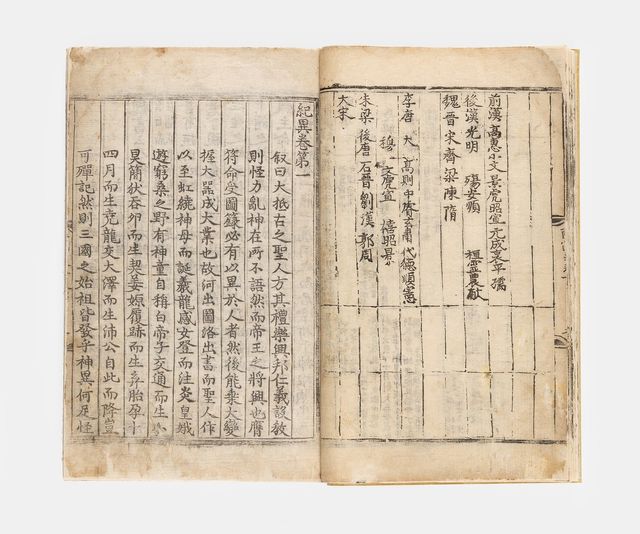 前漢 高惠小文景虎昭宣 元成哀平孺
後漢 光明 殤安順 桓靈農献
魏晉宋齊梁陳隋
李唐 太 高則中睿玄肅代德順憲
穆 文虎宣 僖昭景
朱梁 後唐 石晉 劉漢 郭周
大宋
紀異卷第一
叙曰大抵古之聖人方其禮樂興邦仁義設敎
則怪力亂神在所不語然而帝王之將興也膺
符命受圖籙必有以異於人者然後能乘大變
握大器成大業也故河出圖洛出書而聖人作
以至虹繞神母而誕羲龍感女登而注炎皇娥
遊窮桑之野有神童自稱白帝子交通而生小
昊簡狄吞卵而生契姜嫄履跡而生弃胎孕十
四月而生堯龍交大澤而生沛公自此而降豈
可殫記然則三國之始祖皆發乎神異何足怪